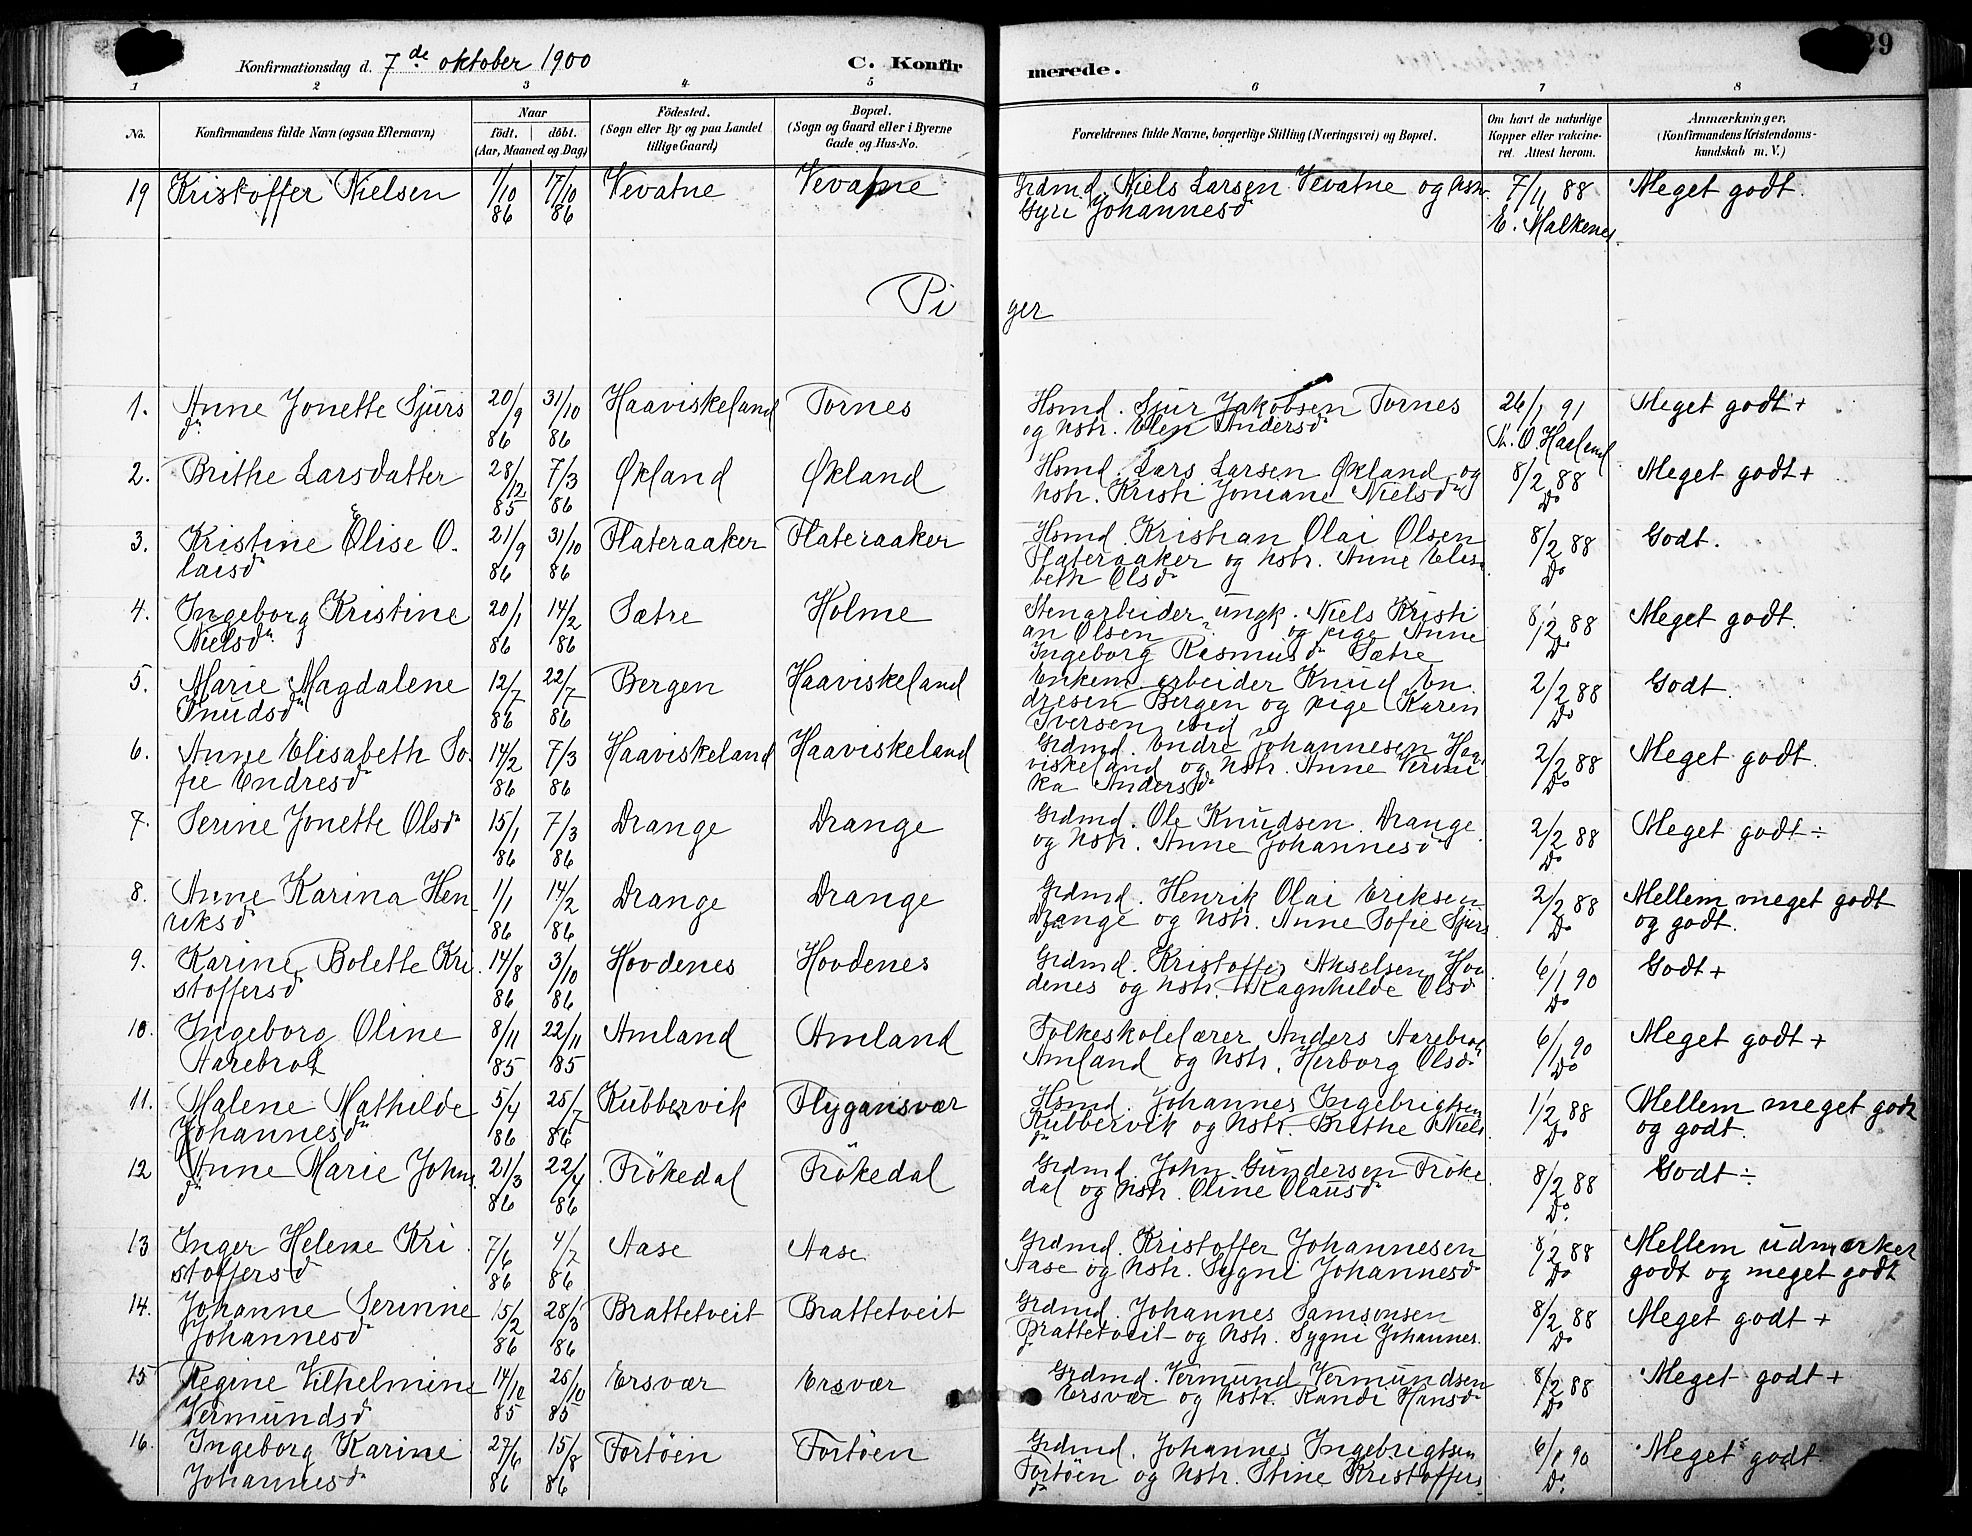 Konfirmationsdag d. 7de oktober 1900
C. Konfirmerede.
29
1 2 3 4 5 6 7 8
No.
Konfirmandens fulde Navn (ogsaa Efternavn)
Naar
født. døbt.
(Aar, Maaned og Dag)
Födested.
(Sogn eller By og paa Landet
tillige Gaard)
Bopæl.
(Sogn og Gaard eller i Byerne
Gade og Hus-No.
Forældrenes fulde Navne, borgerlige Stilling (Næringsvei) og Bopæl.
Om havt de naturlige
Kopper eller vakcine-
ret. Attest herom.
Anmærkninger.
(Konfirmandens Kristendoms-
kundskab m. V.)
19 Kristoffer Nielsen 1/10 86 17/10 86 Vevatne Vevatne Grdmd. Niels Larsen Vevatne og hstr. 7/11 88 Meget godt.
Gyri Johannesd E. Malkenes
Piger
1. Anne Jonette Sjurs 20/9 86 31/10 86 Haaviskeland Tornes Hsmd. Sjur Jakobsen Tornes 26/1 91 Meget godt +
d og hstr. Elen Andersd O. Haaland
2. Brithe Larsdatter 28/12 85 7/3 86 Økland Økland Hsmd. Lars Larsen Økland og 8/2 88 Meget godt +
hstr. Kristi Joniane Nielsd Do
3. Kristine Elise O. 21/9 86 31/10 86 Flateraaker Flateraaker Hsmd. Kristian Olai Olsen 8/2 88 Godt.
laisd Flateraaker og hstr. Anne Elisa Do
beth Olsd
4. Ingeborg Kristine 20/1 86 14/2 86 Sætre Holme Stenarbeider ungk. Niels Kristi 8/2 88 Meget godt.
Nielsd an Olsen og pige Anne Do
Ingeborg Rasmusd Sætre
5. Marie Magdalene 12/7 86 22/7 86 Bergen Haaviskeland Enkem. arbeider Knud En 2/2 88 Godt.
Knudsd dresen Bergen og pige Karen Do
Iversen ibid
6. Anne Elisabeth So. 14/2 86 7/3 86 Haaviskeland Haaviskeland Grdmd. Endre Johannesen Haa 2/2 88 Meget godt.
fie Endresd viskeland og hstr. Anne Veroni Do
ka Andersd
7. Serine Jonette Olsd 15/1 86 7/3 86 Drange Drange Grdmd. Ole Knudsen Drange 2/2 88 Meget godt ÷
og hstr. Anne Johannesd Do
8. Anne Karina Hen 1/1 86 14/2 86 Drange Drange Grdmd. Henrik Olai Eriksen 2/2 88 Mellem meget godt
riksd Drange og hstr. Anne Sofie Sjurs Do og godt.
d
9. Karine Bolette Kri 14/8 86 3/10 86 Hovdenes Hovdenes Grdmd. Kristoffer Akselsen Hov 6/1 90 Godt +
stoffersd denes og hstr. Ragnhilde Olsd Do
10. Ingeborg Oline 8/11 85 22/11 85 Amland Amland Folkeskolelærer Anders Aarebrot 6/1 90 Meget godt +
Aarebrot Amland og hstr. Herborg Olsd Do
11. Malene Mathilde 5/4 86 25/7 86 Kubbervik Flygansvær Hsmd. Johannes Ingebrigtsen 1/2 88 Mellem meget godt
Johannesd Kubbervik og hstr. Brithe Niels Do og godt.
d
12 Anne Marie Johns 21/3 86 22/4 86 Frökedal Frökedal Grdmd. John Gundersen Fröke 8/2 88 Godt ÷
d dal og hstr. Oline Olausd Do
13 Inger Helene Kri 7/6 86 4/7 86 Aase Aase Grdmd. Kristoffer Johannesen 8/2 88 Mellem udmærket
stoffersd Aase og hstr. Sygni Johannesd Do godt og meget godt
14. Johanne Serinine 15/2 86 28/3 86 Brattetveit Brattetveit Grdmd. Johannes Samsonsen 8/2 88 Meget godt +
Johannesd Brattetveit og hstr. Sygni Johannes. Do
d
15 Regine Vilhelmine 14/10 85 25/10 85 Ersvær Ersvær Grdmd. Vermund Vermundsen 8/2 88 Meget godt +
Vermundsd Ersvær og hstr. Randi Hansd Do
16. Ingeborg Karine 27/6 86 15/8 86 Fortöen Fortöen Grdmd. Johannes Ingebrigtsen 6/1 90 Meget godt.
Johannesd Fortöen og hstr. Stine Kristoffers Do
d